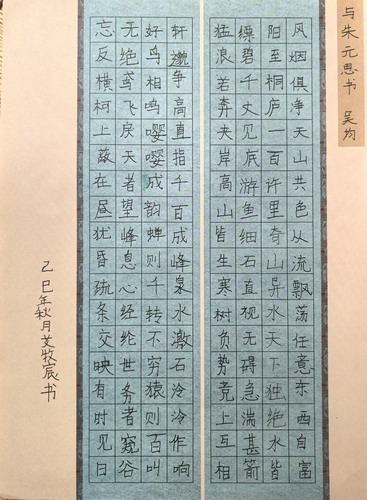 与朱元思书 吴均
风烟俱净天山共色从流飘荡任意东西自富
阳至桐庐一百许里奇山异水天下独绝水皆
缥碧千丈见底游鱼细石直视无碍急湍甚箭
猛浪若奔夹岸高山皆生寒树负势竞上互相
轩邈争高直指千百成峰泉水激石泠泠作响
好鸟相鸣嘤嘤成韵蝉则千转不穷猿则百叫
无绝鸢飞戾天者望峰息心经纶世务者窥谷
忘反横柯上蔽在昼犹昏疏条交映有时见日
乙巳年秋月艾牧宸书